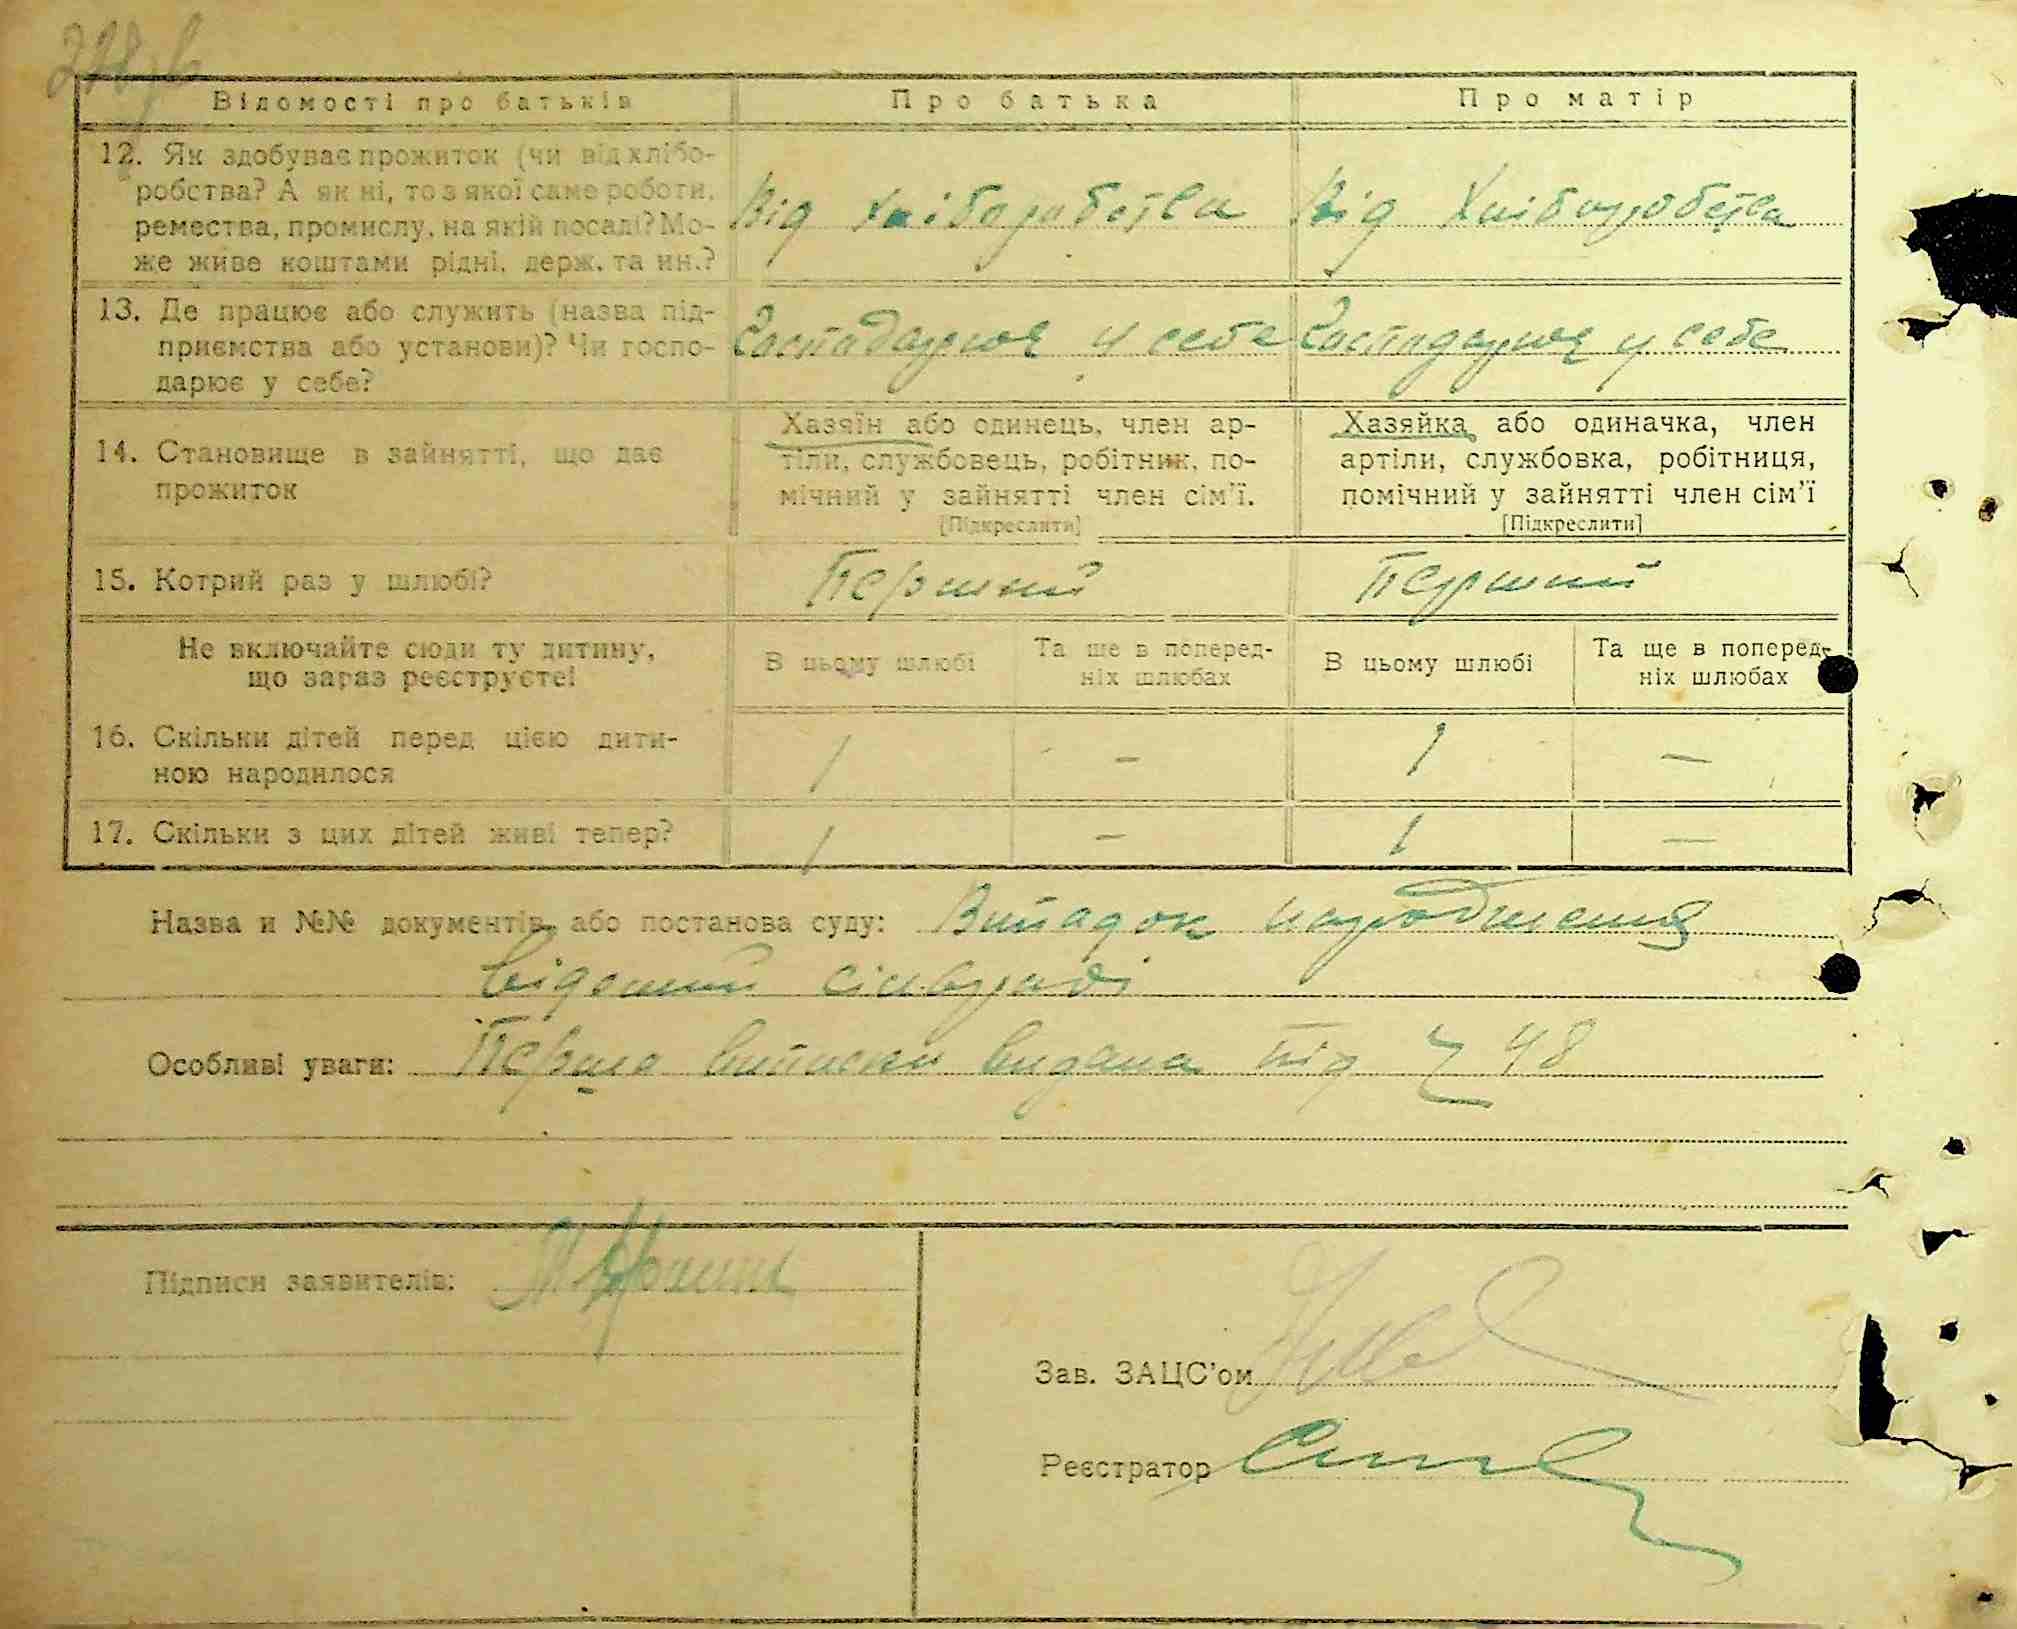 Відомості про батьків Про батька Про матір
12. Як здобуває прожиток (чи від хлібо-
робства? А як ні, то з якої саме роботи,
ремества, промислу, на якій посаді? Мо-
же живе коштами рідні, держ. та ин.?
Від хліборобства Від Хліборобства
13. Де працює або служить (назва під-
приємства або установи)? Чи госпо-
дарює у себе?
Господарює у себе Господарює у себе
14. Становище в зайнятті, що дає
прожиток
Хазяїн або одинець, член ар-
тіли, службовець, робітник, по-
мічний у зайнятті член сім'ї.
[Підкреслити]
Хазяйка або одиначка, член
артіли, службовка, робітниця,
помічний у зайнятті член сім'ї
[Підкреслити]
15. Котрий раз у шлюбі? Перший Перший
Не включайте сюди ту дитину,
що зараз реєструєте!
В цьому шлюбі
Та ще в поперед-
ніх шлюбах
В цьому шлюбі
Та ще в поперед-
ніх шлюбах
16. Скільки дітей перед цією дити-
ною народилося
1 — 1 —
17. Скільки з цих дітей живі тепер? 1 — 1 —
Назва и №№ документів або постанова суду: Випадок народження
відомий сільраді
Особливі уваги: Перша виписка видана під № 48
Підписи заявителів:
Зав. ЗАЦС'ом
Реєстратор